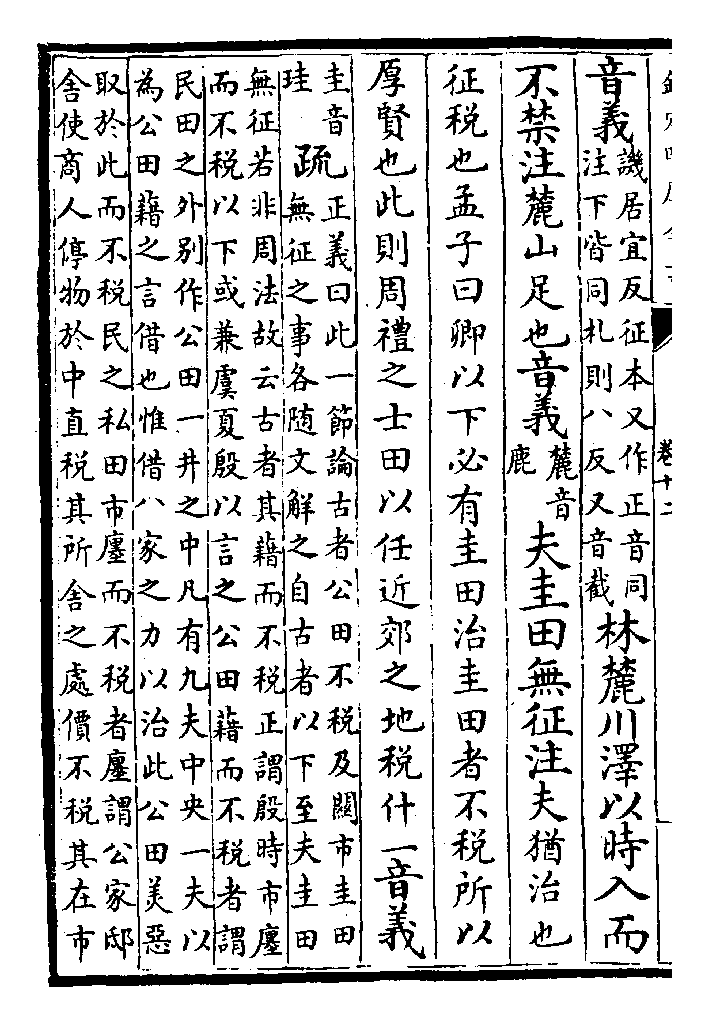 卷十二
音義譏居宜反征本又作正音同
注下皆同札則八反又音截林麓川澤以時入而
不禁注麓山足也音義麓音
鹿夫圭田無征注夫猶治也
征稅也孟子曰卿以下必有圭田治圭田者不稅所以
厚賢也此則周禮之士田以任近郊之地稅什一音義
圭音
珪疏正義曰此一節論古者公田不稅及關市圭田
無征之事各随文解之自古者以下至夫圭田
無征若非周法故云古者其藉而不稅正謂殷時市廛
而不稅以下或兼虞夏殷以言之公田藉而不稅者謂
民田之外别作公田一井之中凡有九夫中央一夫以
為公田藉之言借也惟借八家之力以治此公田美惡
取於此而不稅民之私田市廛而不稅者廛謂公家邸
舎使商人停物於中直稅其所舎之處價不稅其在市